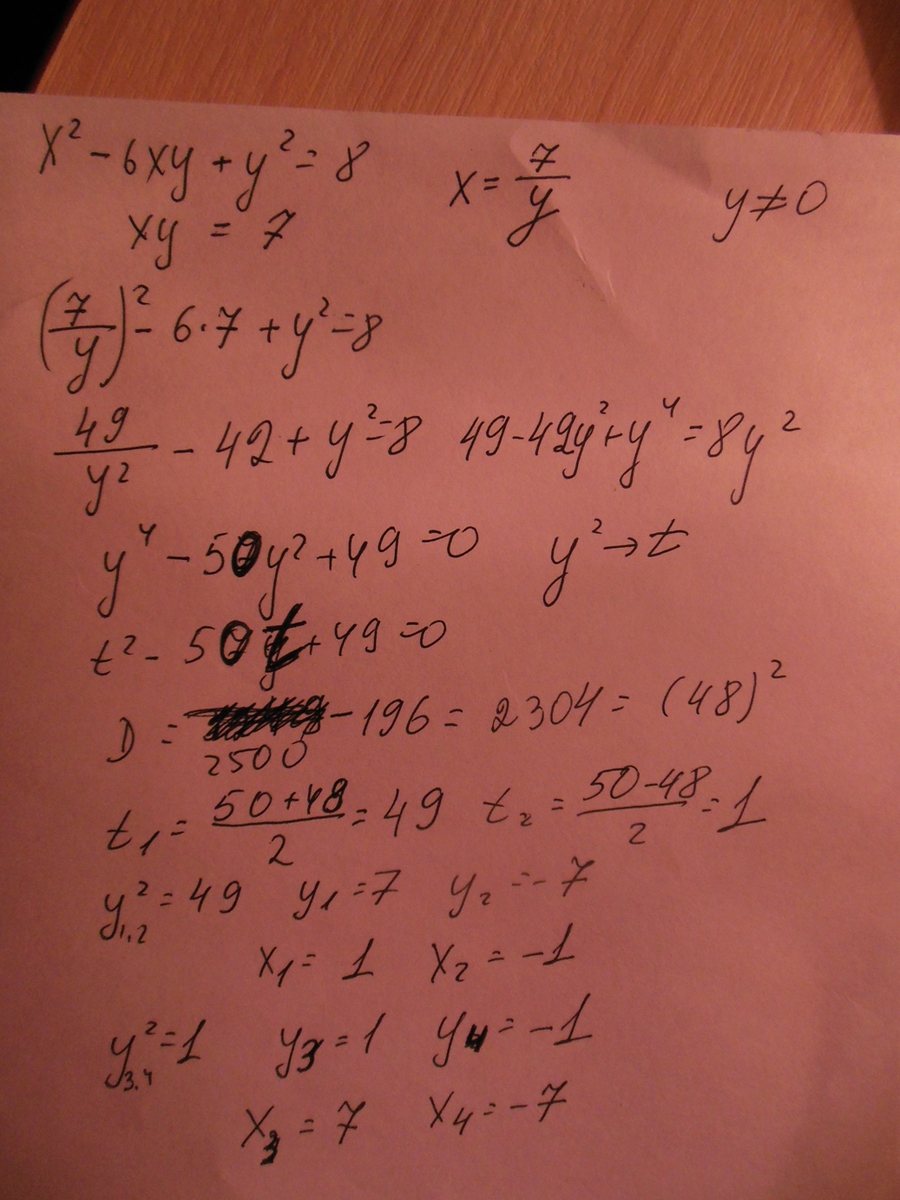 x² - 6xy + y² = 8
xy = 7
x = 7/y
y ≠ 0
(7/y)² - 6·7 + y² = 8
49/y² - 42 + y² = 8   49 - 42y² + y⁴ = 8y²
y⁴ - 50y² + 49 = 0   y² → t
t² - 50t + 49 = 0
D = 2500 - 196 = 2304 = (48)²
t₁ = (50+48)/2 = 49   t₂ = (50-48)/2 = 1
y²₁,₂ = 49   y₁ = 7   y₂ = -7
x₁ = 1   x₂ = -1
y²₃,₄ = 1   y₃ = 1   y₄ = -1
x₃ = 7   x₄ = -7